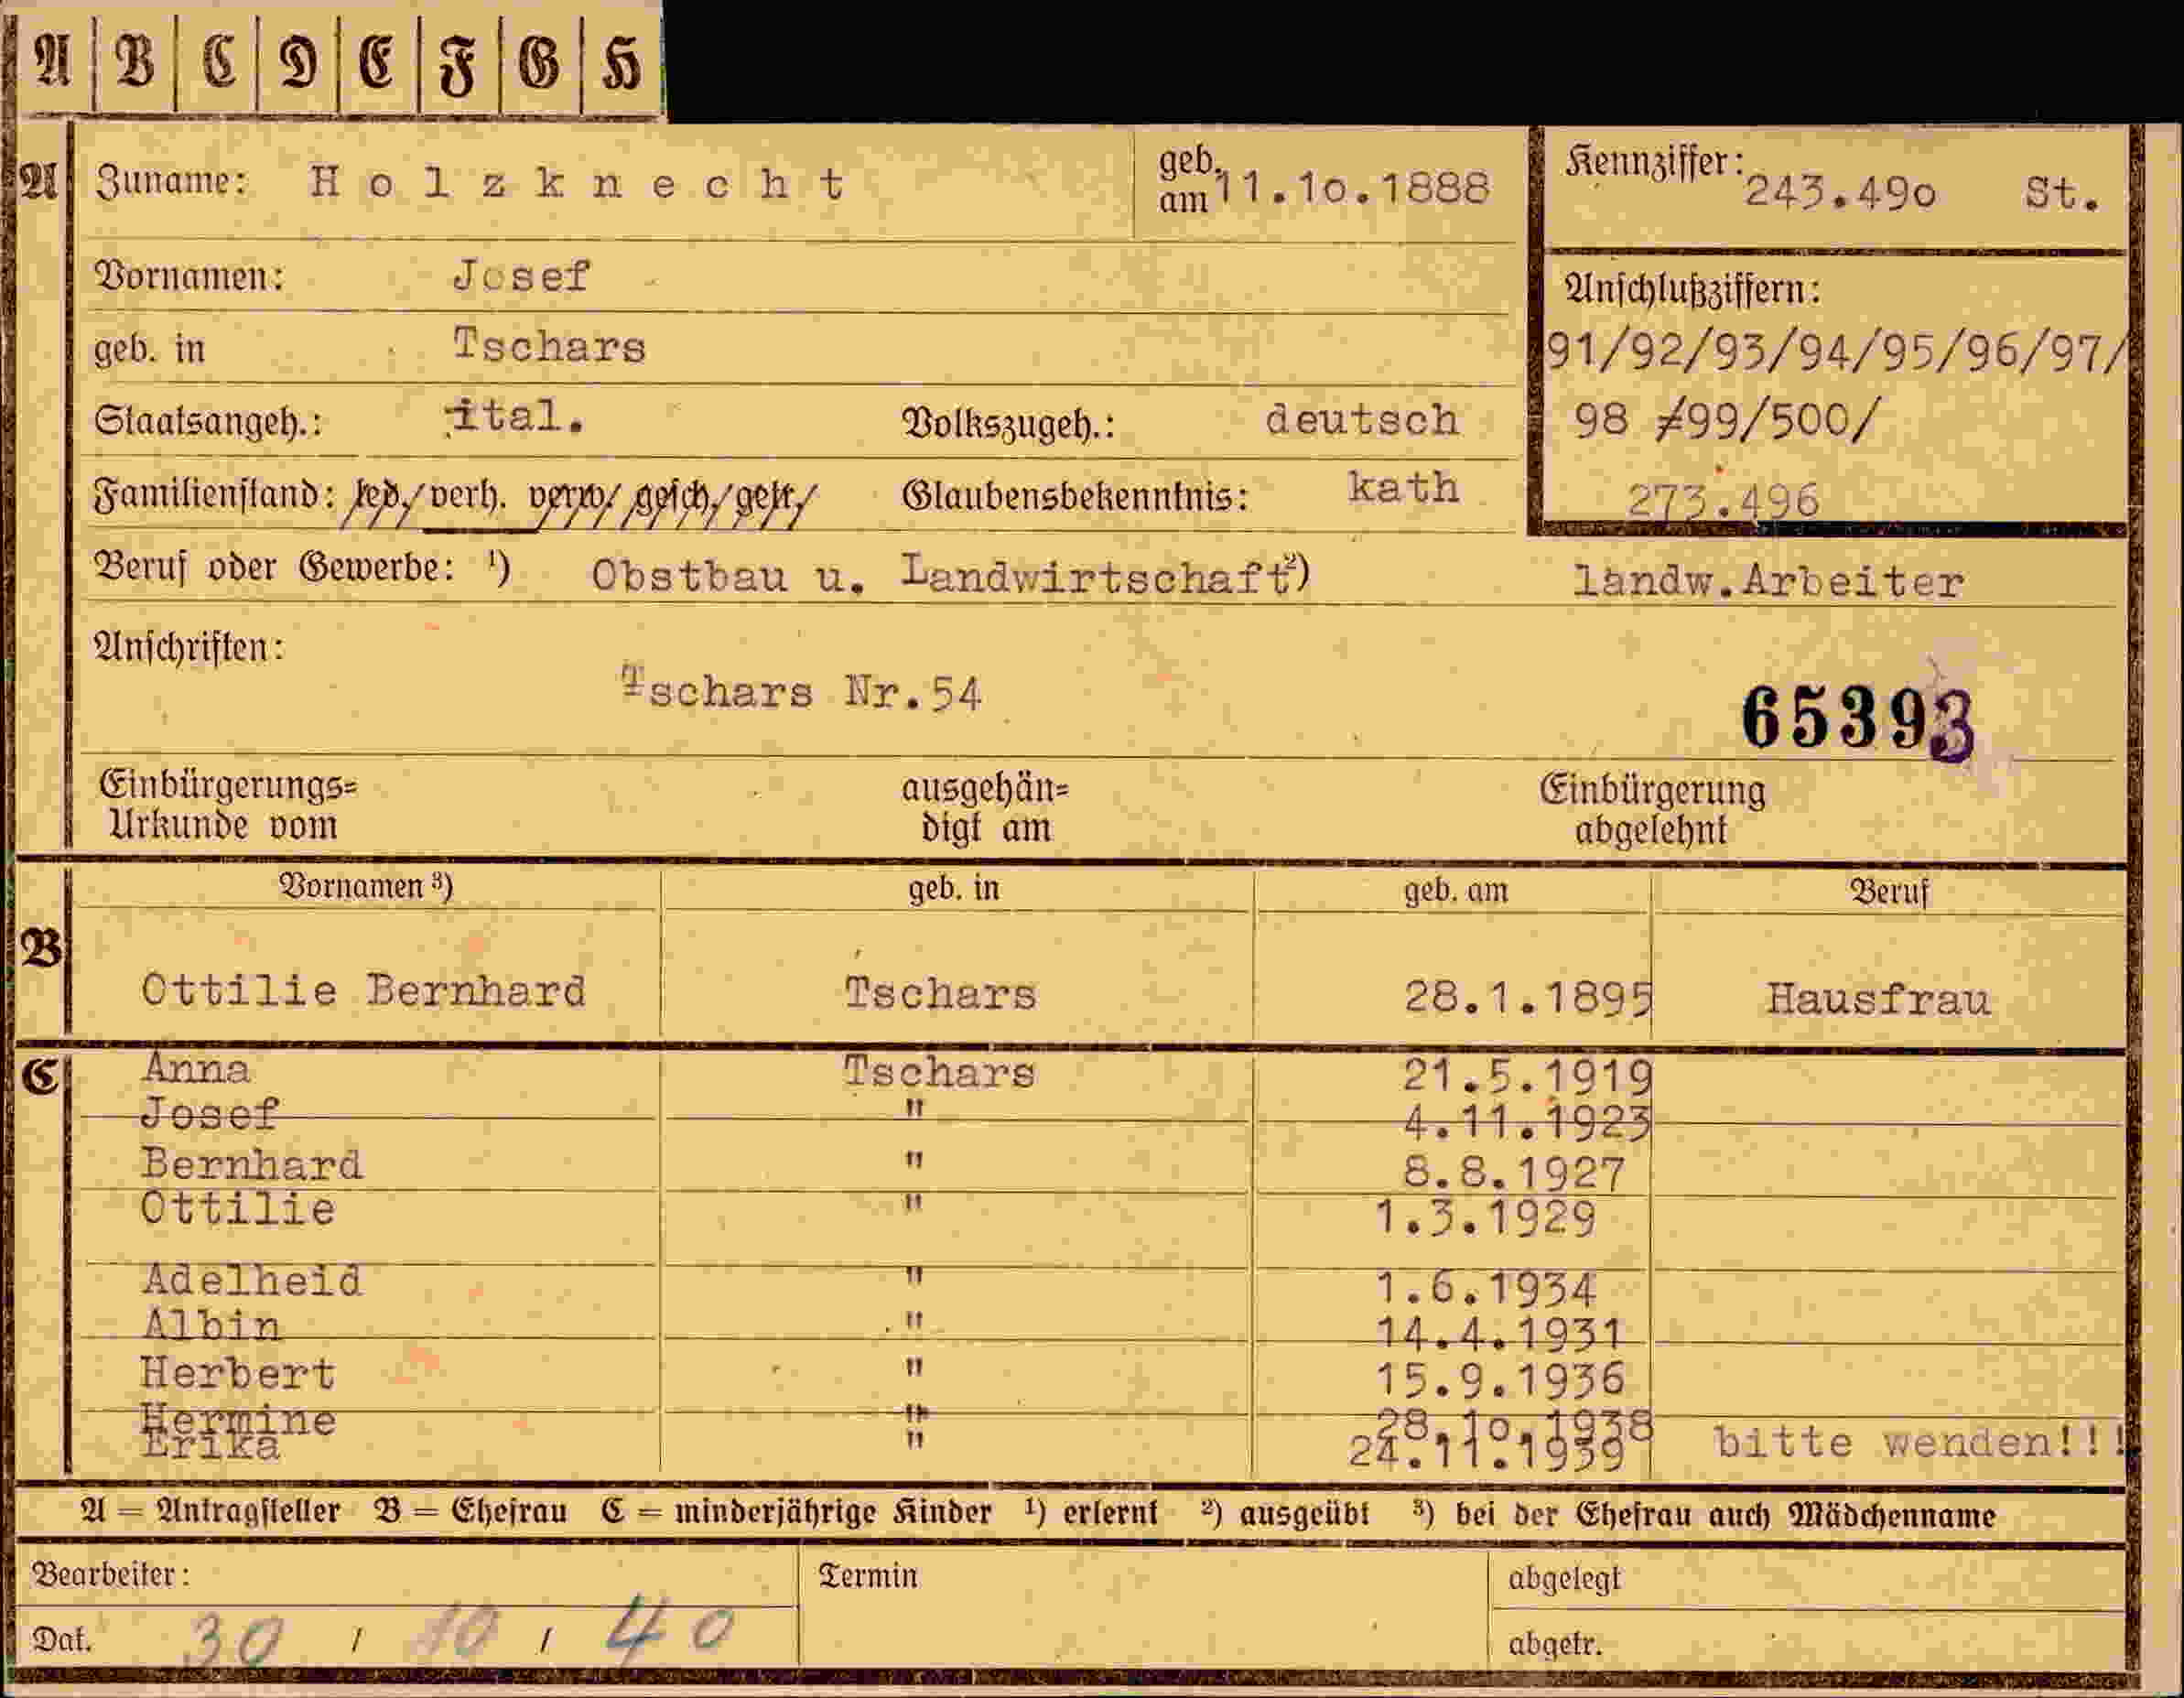 A B C D E F G H
A Zuname: Holzknecht geb. am 11.10.1888 Kennziffer: 243.490 St.
Vornamen: Josef
Anschlußziffern:
geb. in Tschars 91/92/93/94/95/96/97/
Staatsangeh.: ital. Volkszugeh.: deutsch 98 /99/500/
Familienstand: led./verh. verw./gesch./getr./ Glaubensbekenntnis: kath 273.496
Beruf oder Gewerbe: ¹) Obstbau u. Landwirtschaft ²) landw.Arbeiter
Anschriften:
Tschars Nr.54 65393
Einbürgerungs= ausgehän= Einbürgerung
Urkunde vom digt am abgelehnt
Vornamen ³) geb. in geb. am Beruf
B
Ottilie Bernhard Tschars 28.1.1895 Hausfrau
C Anna Tschars 21.5.1919
Josef " 4.11.1923
Bernhard " 8.8.1927
Ottilie " 1.3.1929
Adelheid " 1.6.1934
Albin " 14.4.1931
Herbert " 15.9.1936
Hermine " 28.10.1938
Erika " 24.11.1939 bitte wenden!!!
A = Antragsteller B = Ehefrau C = minderjährige Kinder ¹) erlernt ²) ausgeübt ³) bei der Ehefrau auch Mädchenname
Bearbeiter: Termin abgelegt
Dat. 30 / 10 / 40 abgetr.